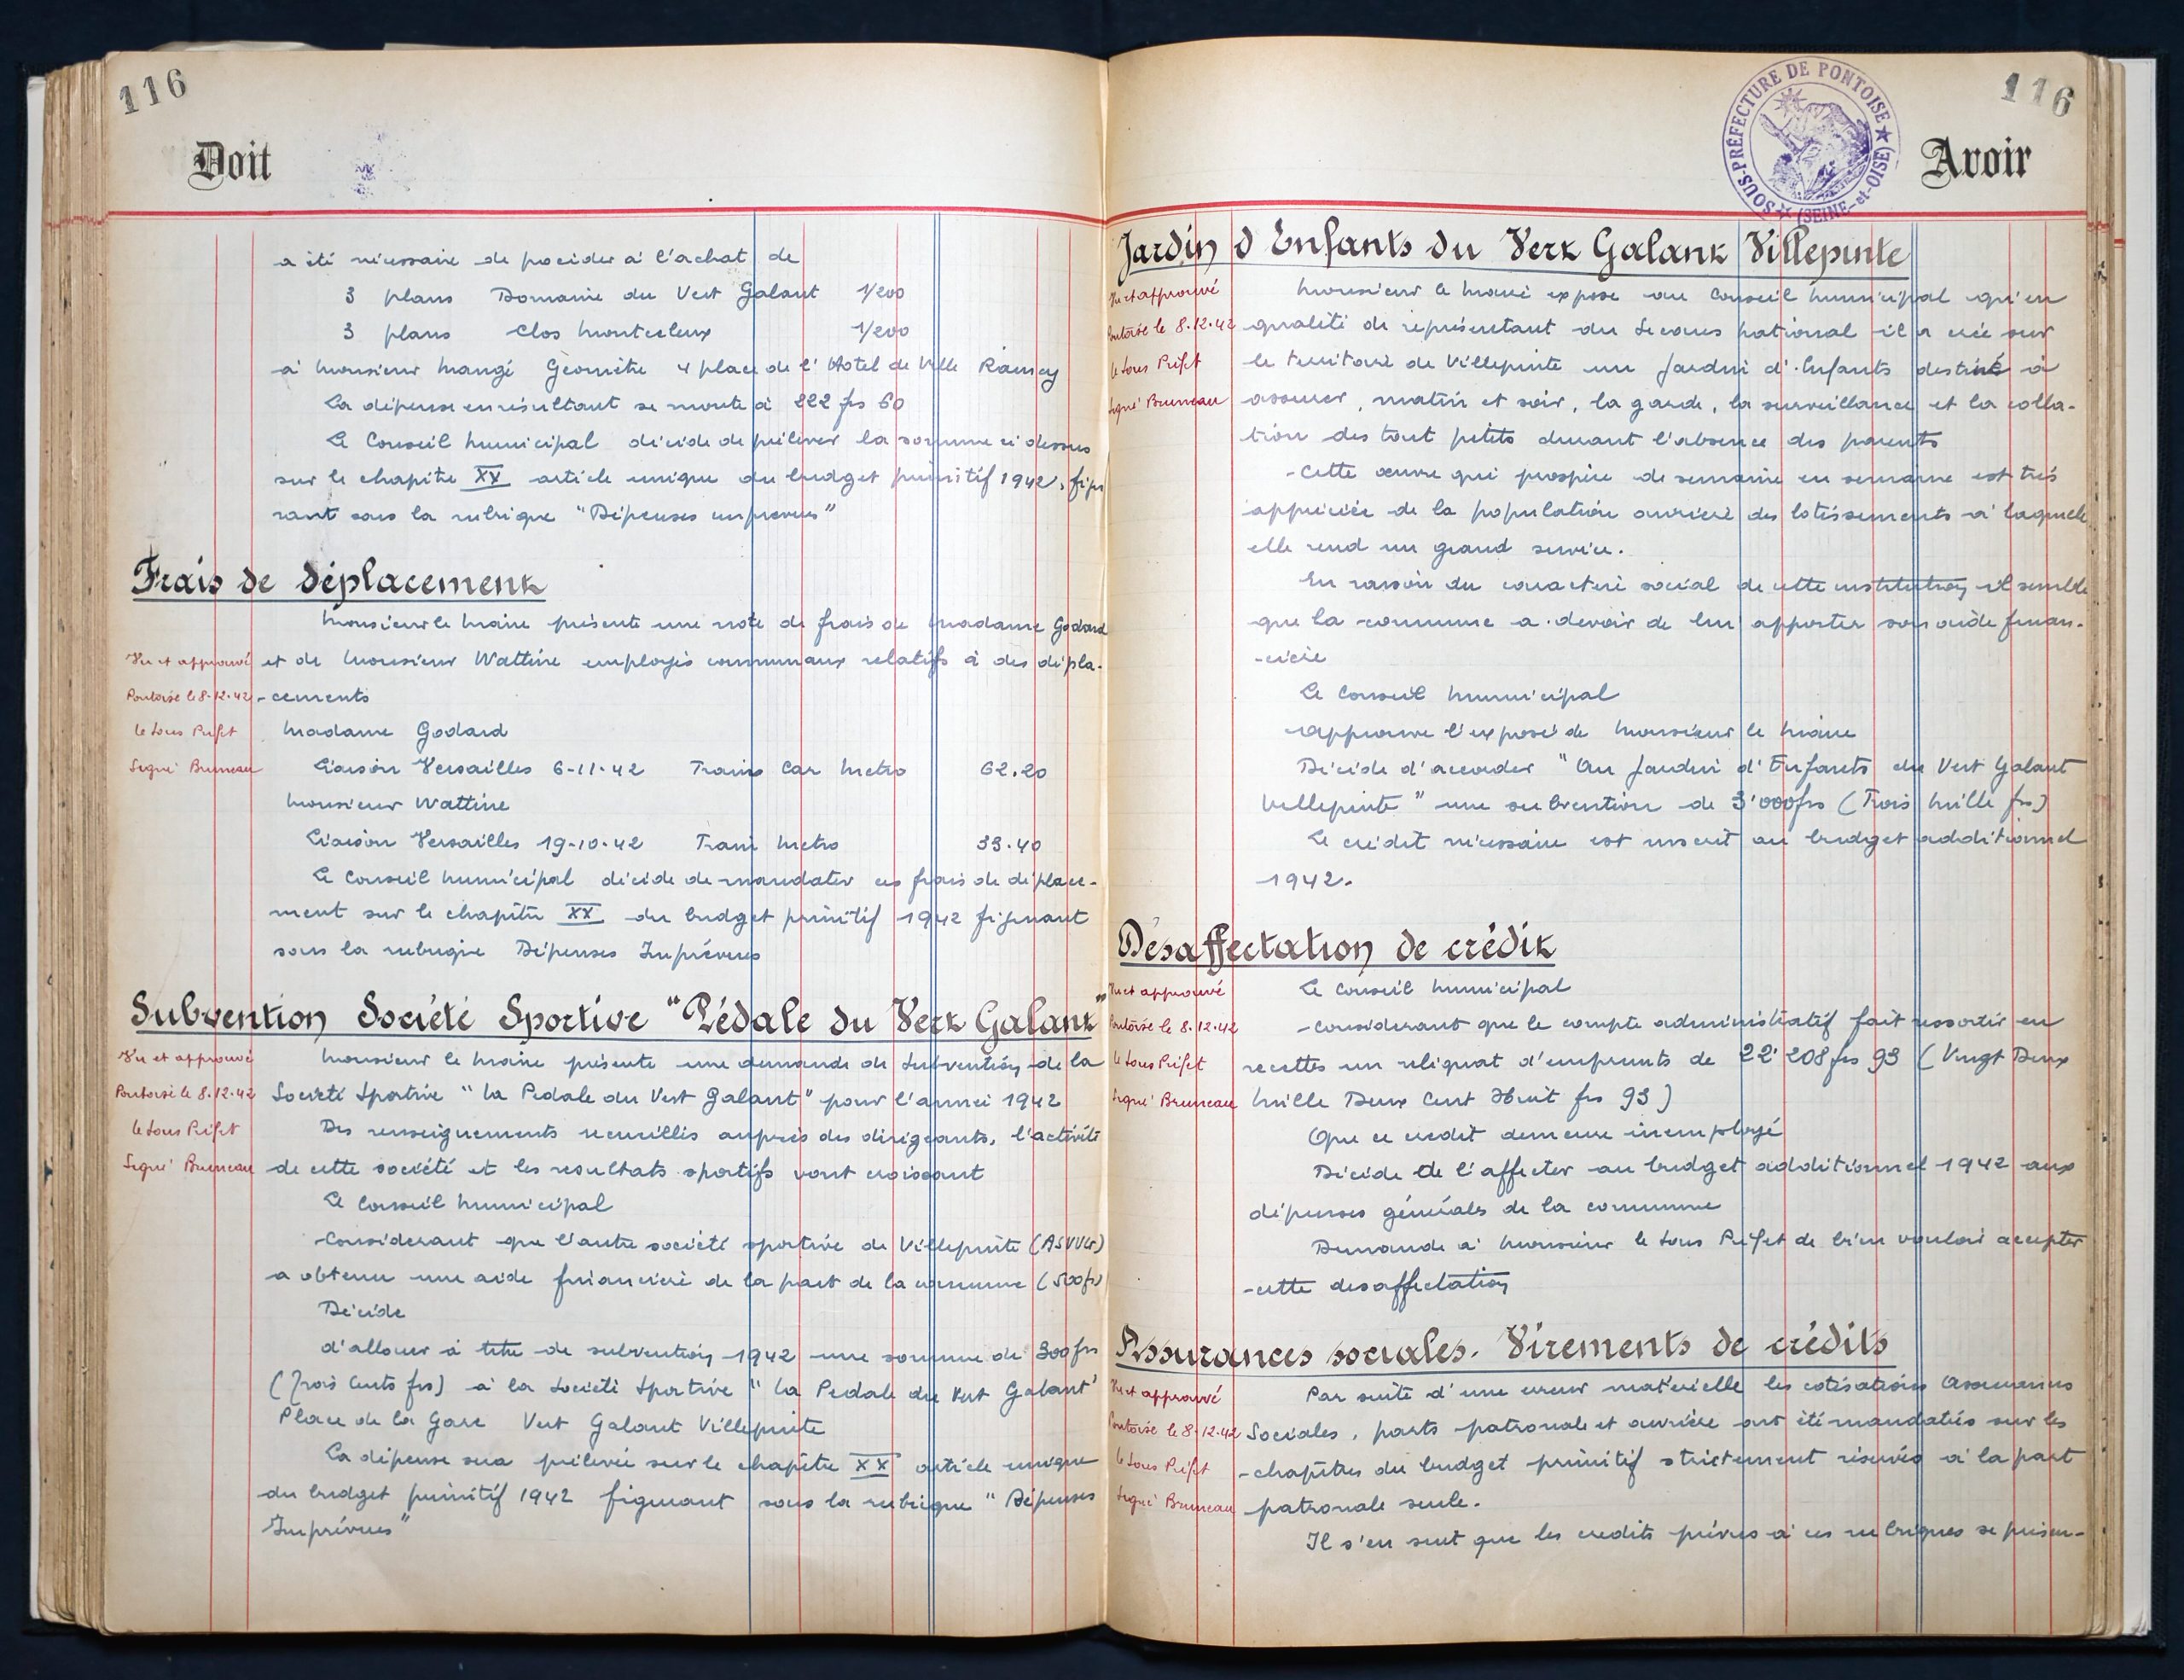 116
Doit
a été nécessaire de procéder à l'achat de
3 plans Domaine du Vert Galant 1/200
3 plans Clos Montceleux 1/200
à Monsieur Mangé Géomètre 4 place de l'Hotel de Ville Raincy
La dépense en résultant se monte à 222 frs 60
Le Conseil Municipal décide de prélever la somme ci dessus
sur le chapitre XX article unique du budget primitif 1942, figu
rant sous la rubrique "Dépenses imprévues"
Frais de déplacement
Monsieur le Maire présente une note de frais de Madame Godard
Vu et approuvé et de Monsieur Wattine employés communaux relatifs à des dépla-
Pontoise le 8.12.42 -cements
le Sous Préfet Madame Godard
Signé Bruneau Liaison Versailles 6-11-42 Train Car Metro 62.20
Monsieur Wattine
Liaison Versailles 19-10-42 Train Metro 33.40
Le Conseil Municipal décide de mandater ces frais de déplace-
ment sur le chapitre XX du budget primitif 1942 figurant
sous la rubrique Dépenses Imprévues
Subvention Société Sportive "Pédale du Vert Galant"
Vu et approuvé Monsieur le Maire présente une demande de subvention de la
Pontoise le 8.12.42 Société Sportive "La Pedale du Vert Galant" pour l'année 1942
le Sous Préfet Des renseignements recueillis auprès des dirigeants, l'activité
Signé Bruneau de cette société et les resultats sportifs vont croissant
Le Conseil Municipal
Considerant que l'autre société sportive de Villepinte (ASVVG)
a obtenu une aide financière de la part de la commune (500frs)
Décide
d'allouer à titre de subvention 1942 une somme de 300 frs
(Trois Cents frs) à la Société Sportive "La Pedale du Vert Galant"
Place de la Gare Vert Galant Villepinte
La dépense sera prélevée sur le chapitre XX article unique
du budget primitif 1942 figurant sous la rubrique "Dépenses
Imprévues"
116
SOUS-PRÉFECTURE DE PONTOISE (SEINE-et-OISE)
Avoir
Jardin d'Enfants du Vert Galant Villepinte
Vu et approuvé Monsieur le Maire expose au Conseil Municipal qu'en
Pontoise le 8.12.42 qualité de représentant du Secours National il a créé sur
le Sous Préfet le territoire de Villepinte un Jardin d'Enfants destiné à
Signé Bruneau assurer, matin et soir, la garde, la surveillance et la colla-
tion des tout petits durant l'absence des parents
Cette œuvre qui prospère de semaine en semaine est très
appréciée de la population ouvrière des lotissements à laquelle
elle rend un grand service.
En raison du caractère social de cette institution il semble
que la commune a devoir de lui apporter son aide finan-
-cière
Le Conseil Municipal
approuve l'exposé de Monsieur le Maire
Décide d'accorder "Au Jardin d'Enfants du Vert Galant
Villepinte" une subvention de 3'000frs (Trois Mille frs)
Le crédit nécessaire est inscrit au budget additionnel
1942.
Désaffectation de crédit
Vu et approuvé Le Conseil Municipal
Pontoise le 8.12.42 Considerant que le compte administratif fait ressortir en
le Sous Préfet recettes un reliquat d'emprunts de 22'208 frs 93 (Vingt Deux
Signé Bruneau Mille Deux Cent Huit frs 93)
Que ce credit demeure inemployé
Décide de l'affecter au budget additionnel 1942 aux
dépenses générales de la commune
Demande à Monsieur le Sous Préfet de bien vouloir accepter
cette desaffectation
Assurances sociales. Virements de crédits
Vu et approuvé Par suite d'une erreur matérielle les cotisations Assurances
Pontoise le 8.12.42 Sociales, parts patronale et ouvrière ont été mandatées sur les
le Sous Préfet chapitres du budget primitif strictement réservés à la part
Signé Bruneau patronale seule.
Il s'en suit que les credits prévus à ces rubriques se présen-